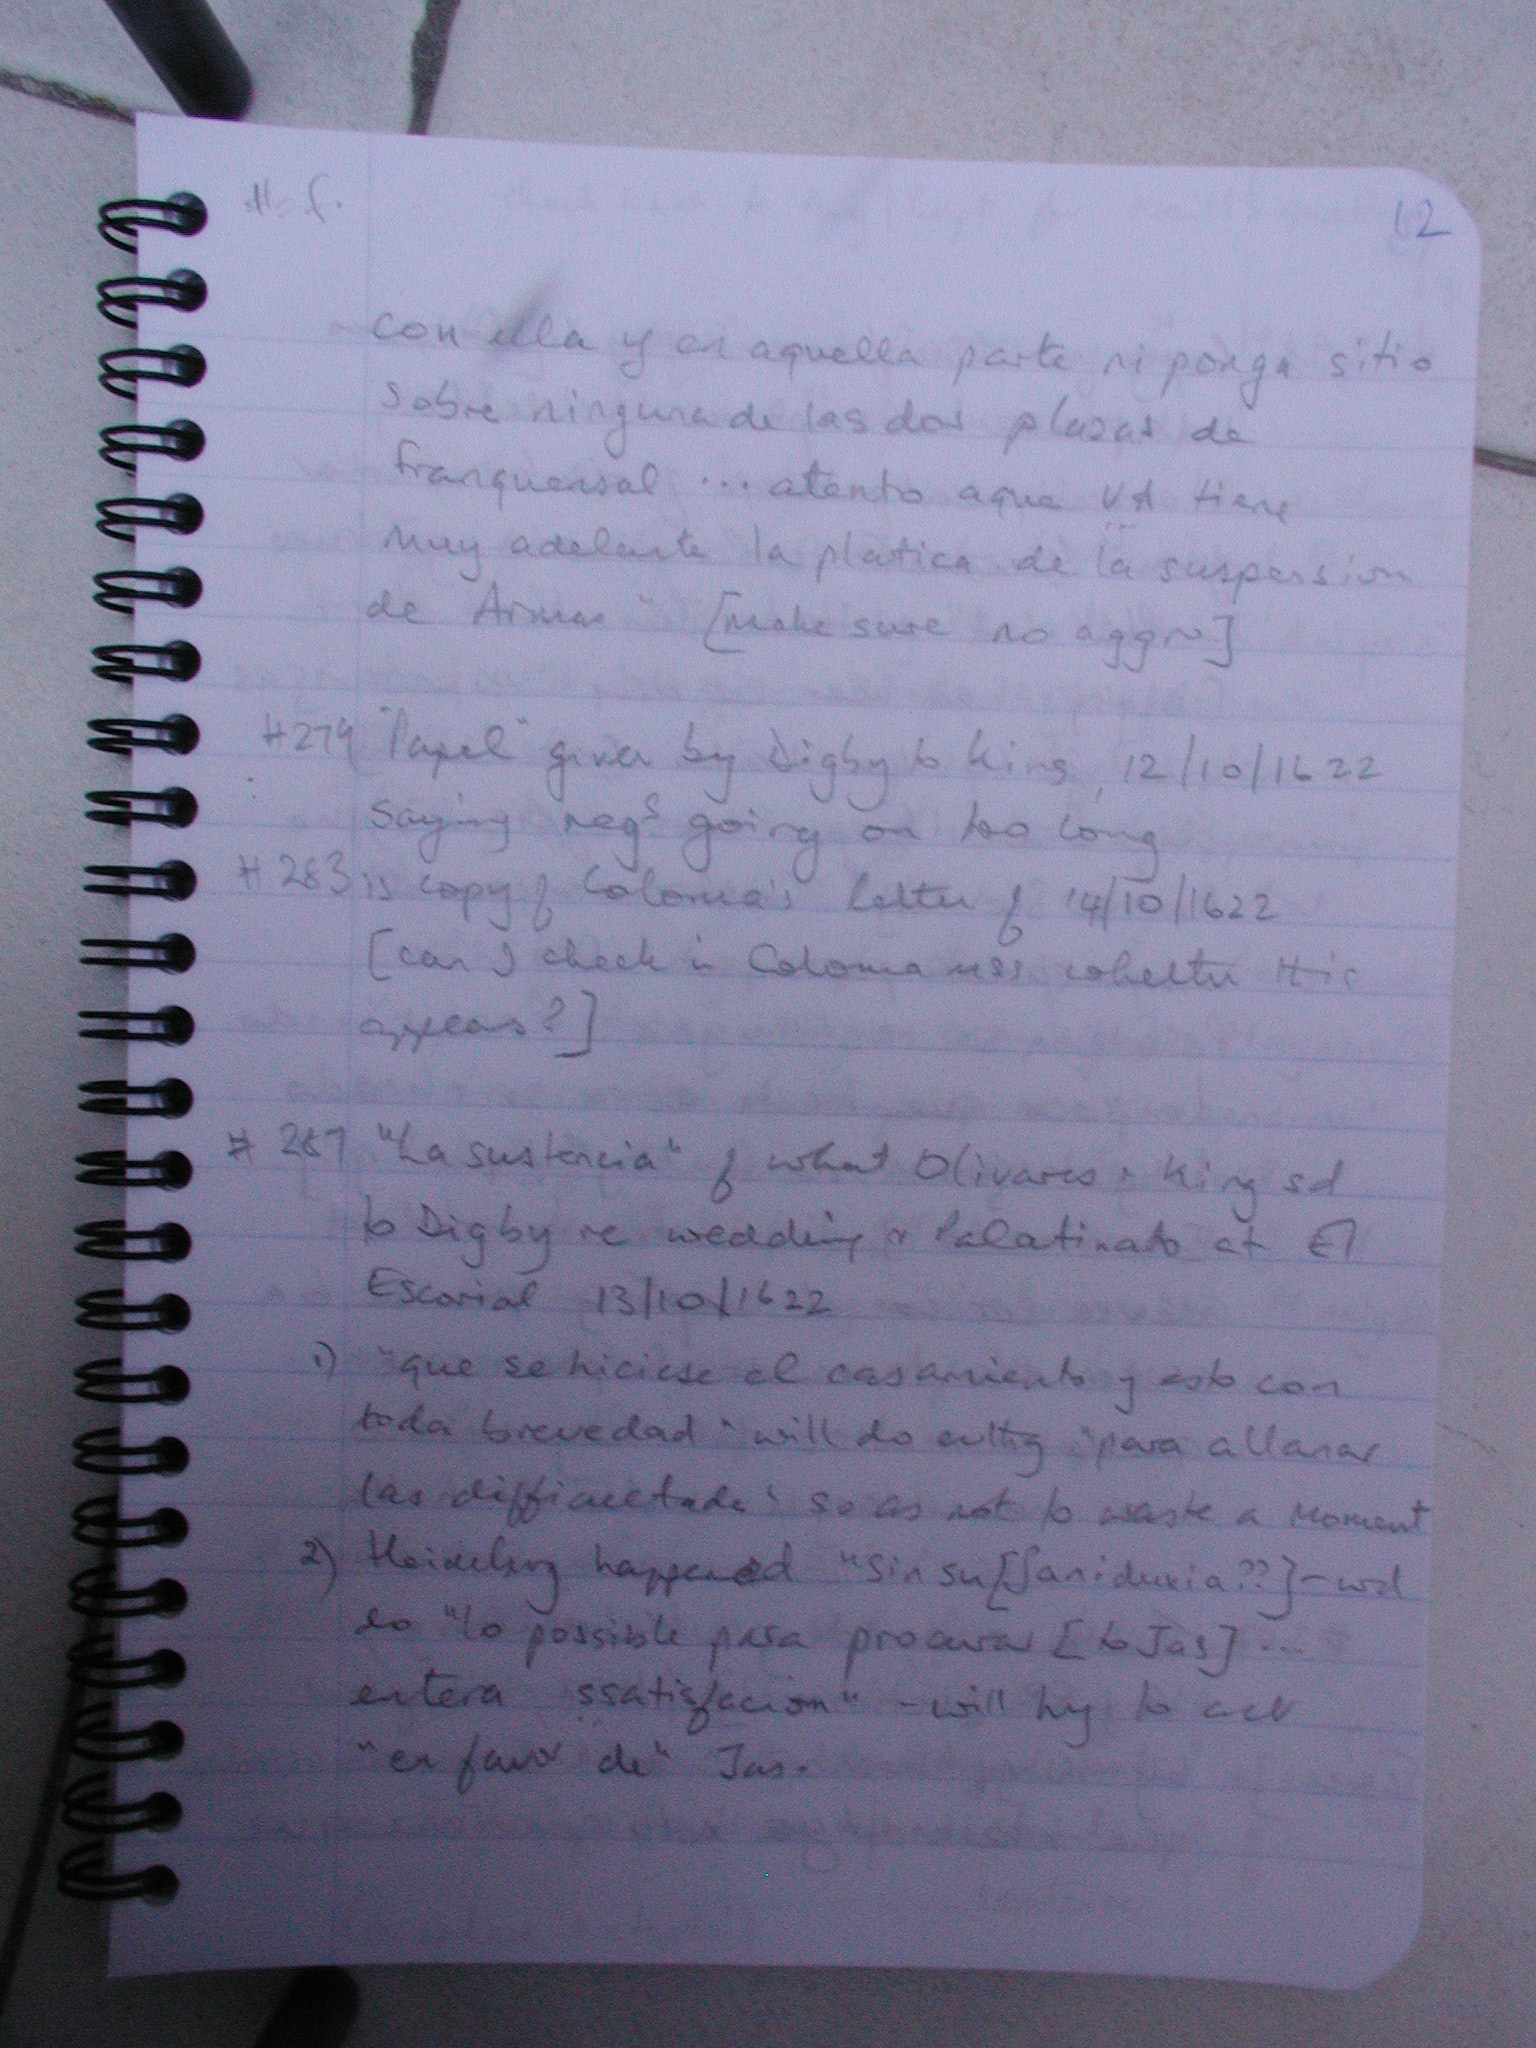 12
con ella y en aquella parte ni ponga sitio
sobre ninguna de las dos plazas de
franquensal ... atento aque VA tiene
muy adelante la platica de la suspension
de Armas" [make sure no aggro]
#279 "Papel" given by Digby to King, 12/10/1622
saying negs going on too long
#283 is copy of Coloma's letter of 14/10/1622
[can I check in Coloma MSS whether this
appears?]
# 287 "La sustencia" of what Olivares + King sd
to Digby re wedding + Palatinato at El
Escorial 13/10/1622
1) "que se hiciese el casamiento y esto con
toda brevedad" will do evthg "para allanar
las difficultades" so as not to waste a moment
2) Heidelbrg happened "sin su [saniduria??] - wd
do "lo possible para procurar [to Jas] ...
entera ssatisfacion" - will try to act
"en favor de" Jas.